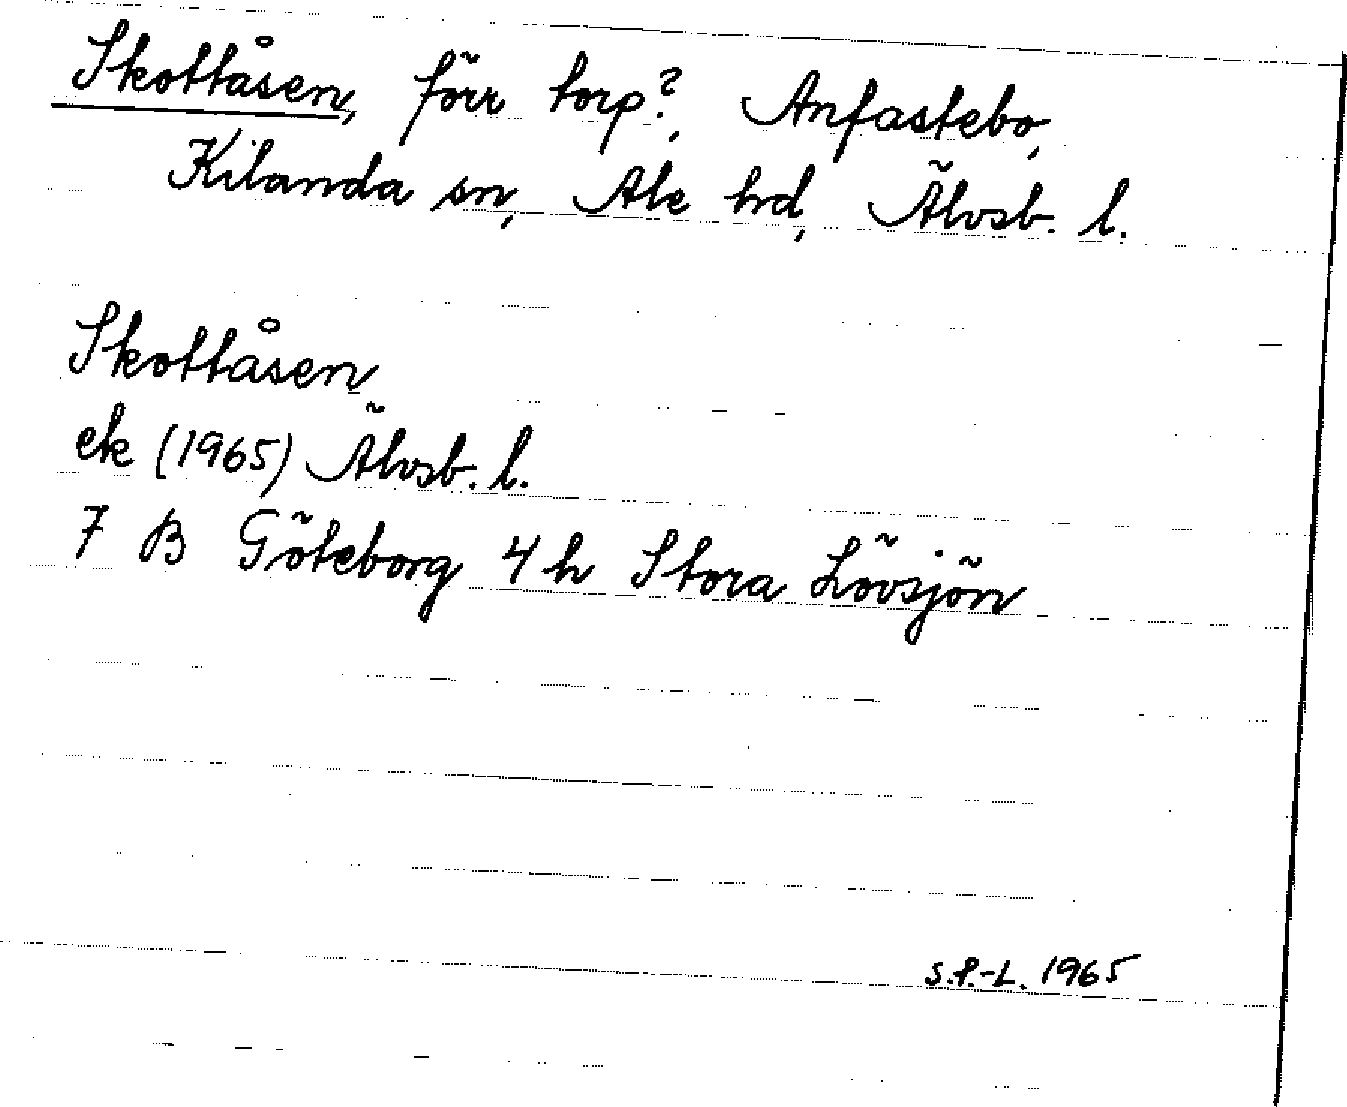 Skottåsen, förr torp?, Anfastebo,
Kilanda sn, Ale hrd, Älvsb. l.
Skottåsen
ek (1965) Älvsb. l.
7 B Göteborg 4 h Stora Lövsjön
S.P.-L. 1965